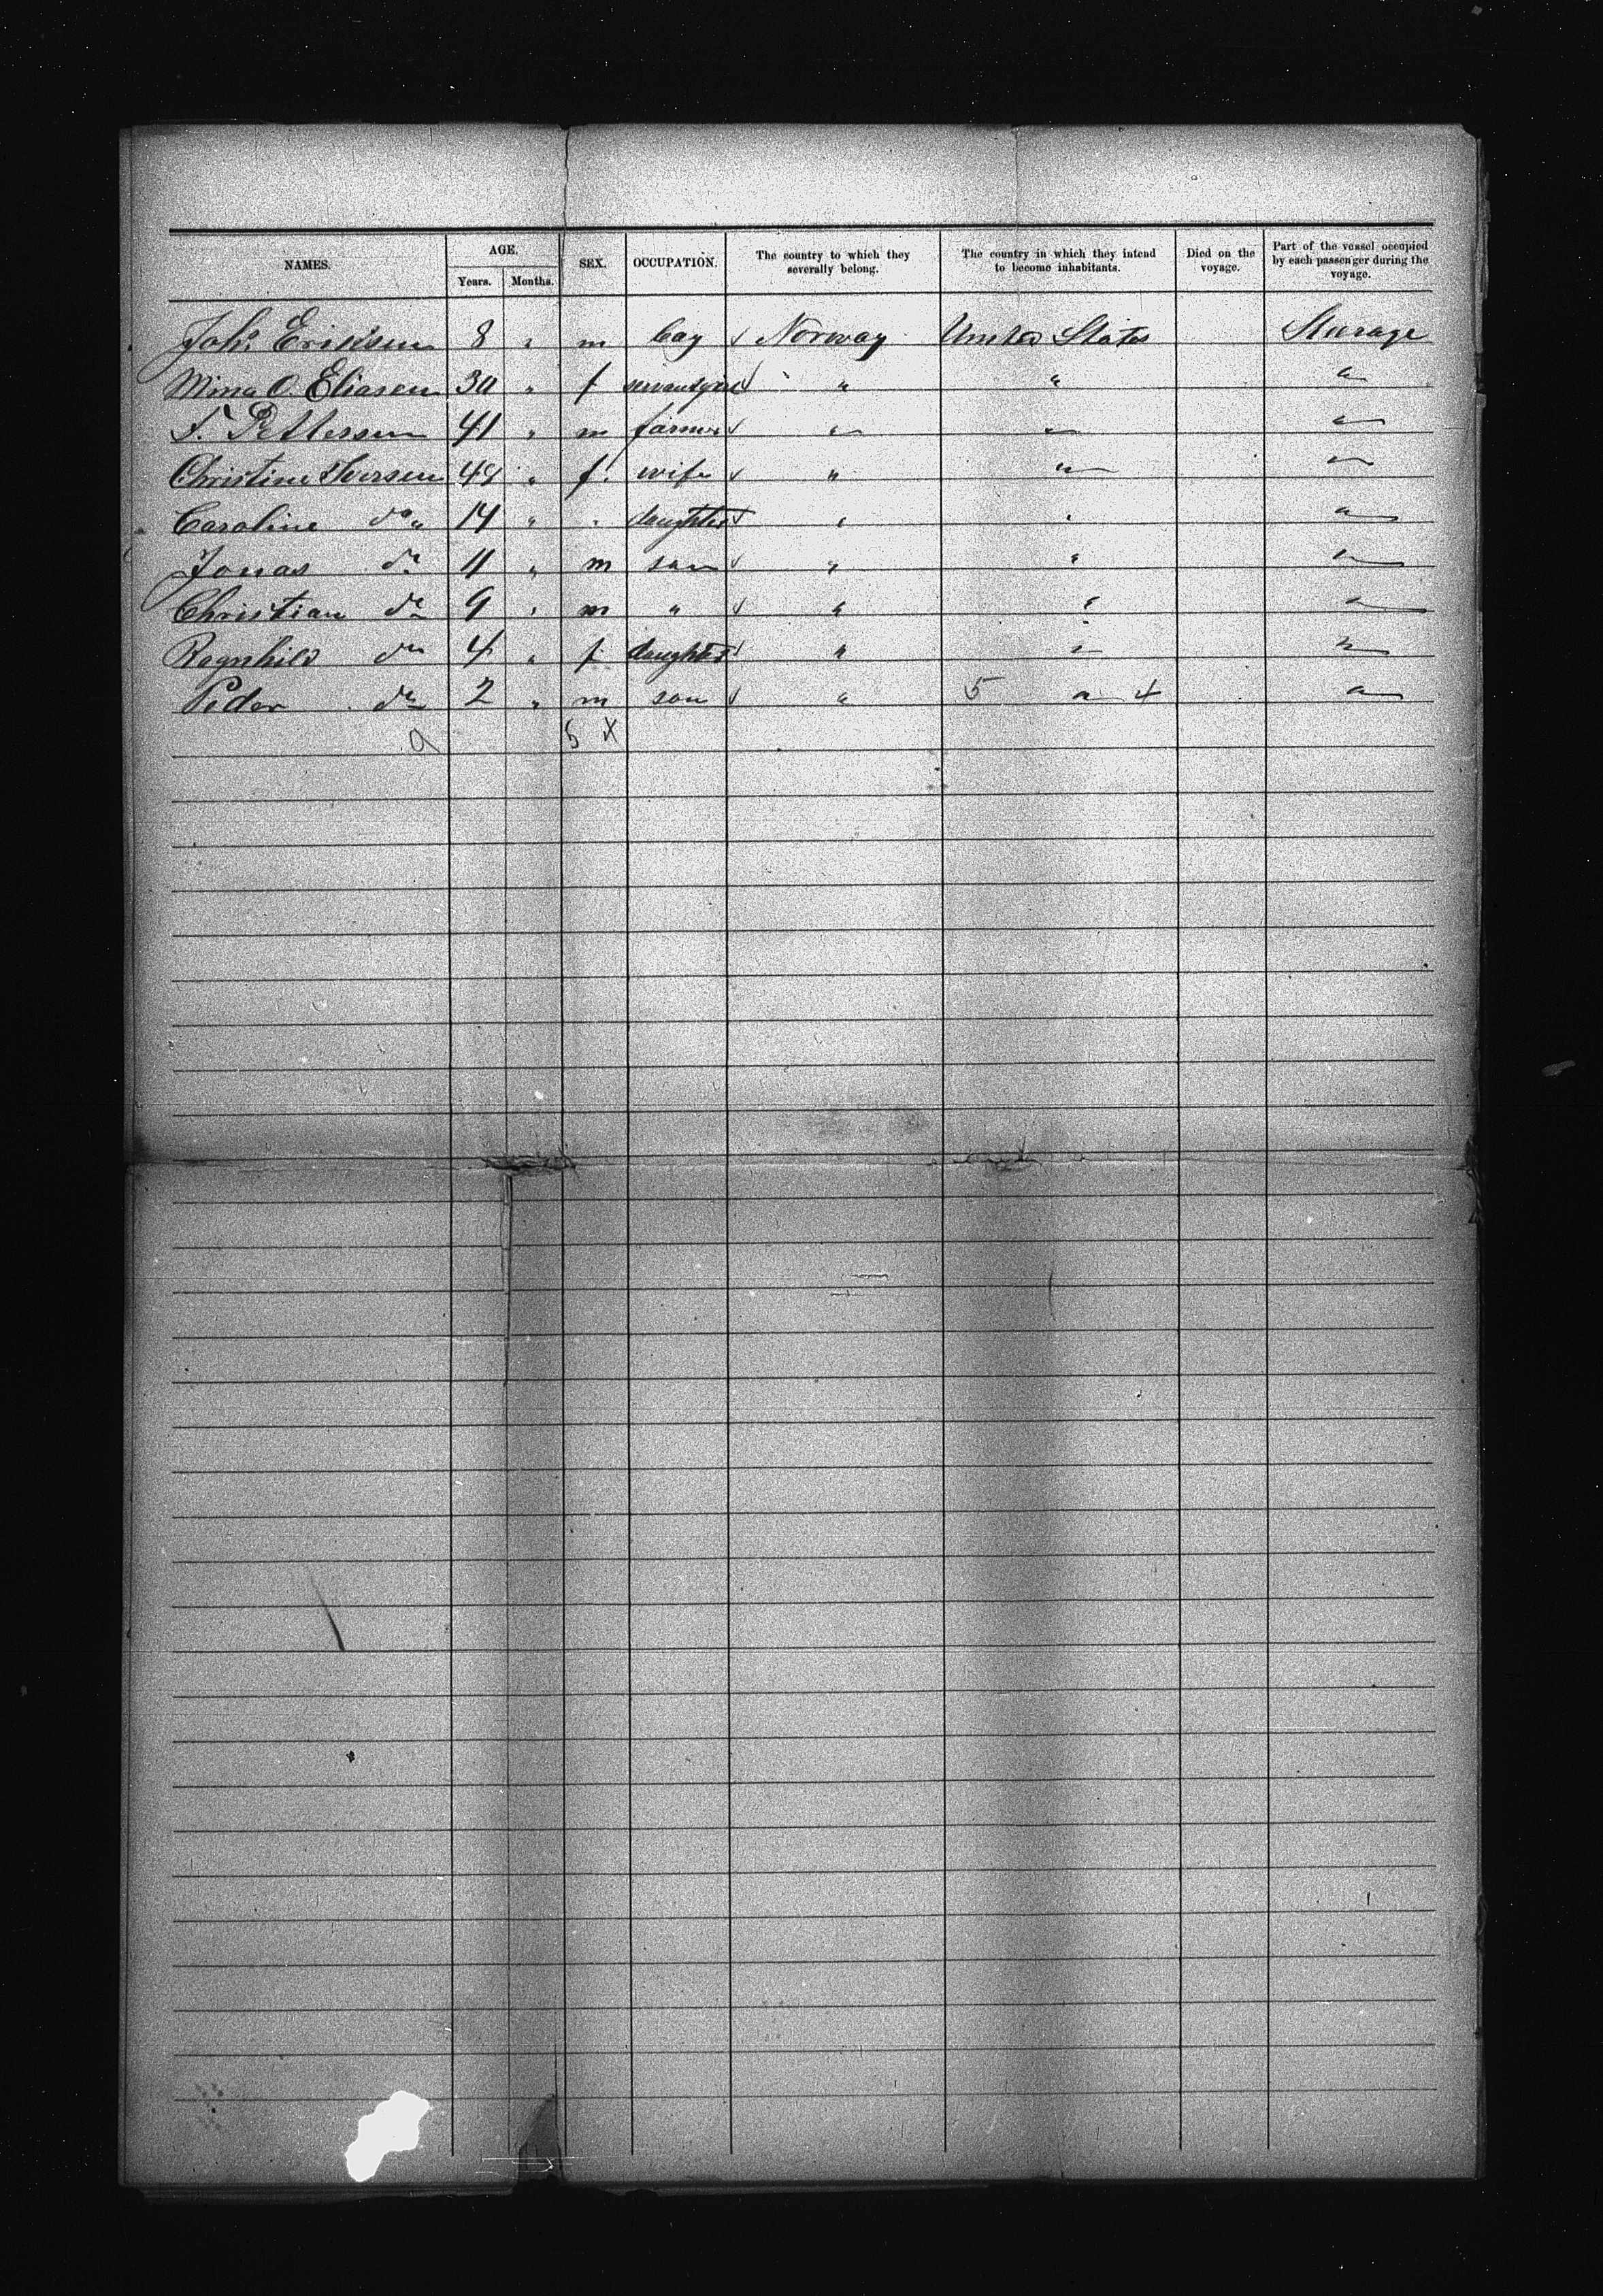 NAMES. AGE. SEX. OCCUPATION. The country to which they severally belong. The country in which they intend to become inhabitants. Died on the voyage. Part of the vessel occupied by each passenger during the voyage.
Years. Months.
Joh. Eriksen 8 " m boy √ Norway United States Steerage
Mina O. Eliasen 30 " f servantgirl √ " " "
T. Pettersen 41 " m farmer √ " " "
Christine Iversen 49 " f. wife √ " " "
Caroline do " 14 " " daughter √ " " "
Jonas do 11 " m son √ " " "
Christian do 9 " m " √ " " "
Ragnhild do 4 " f daughter √ " " "
Peder do 2 " m son √ " 5 " 4 "
9 5 X